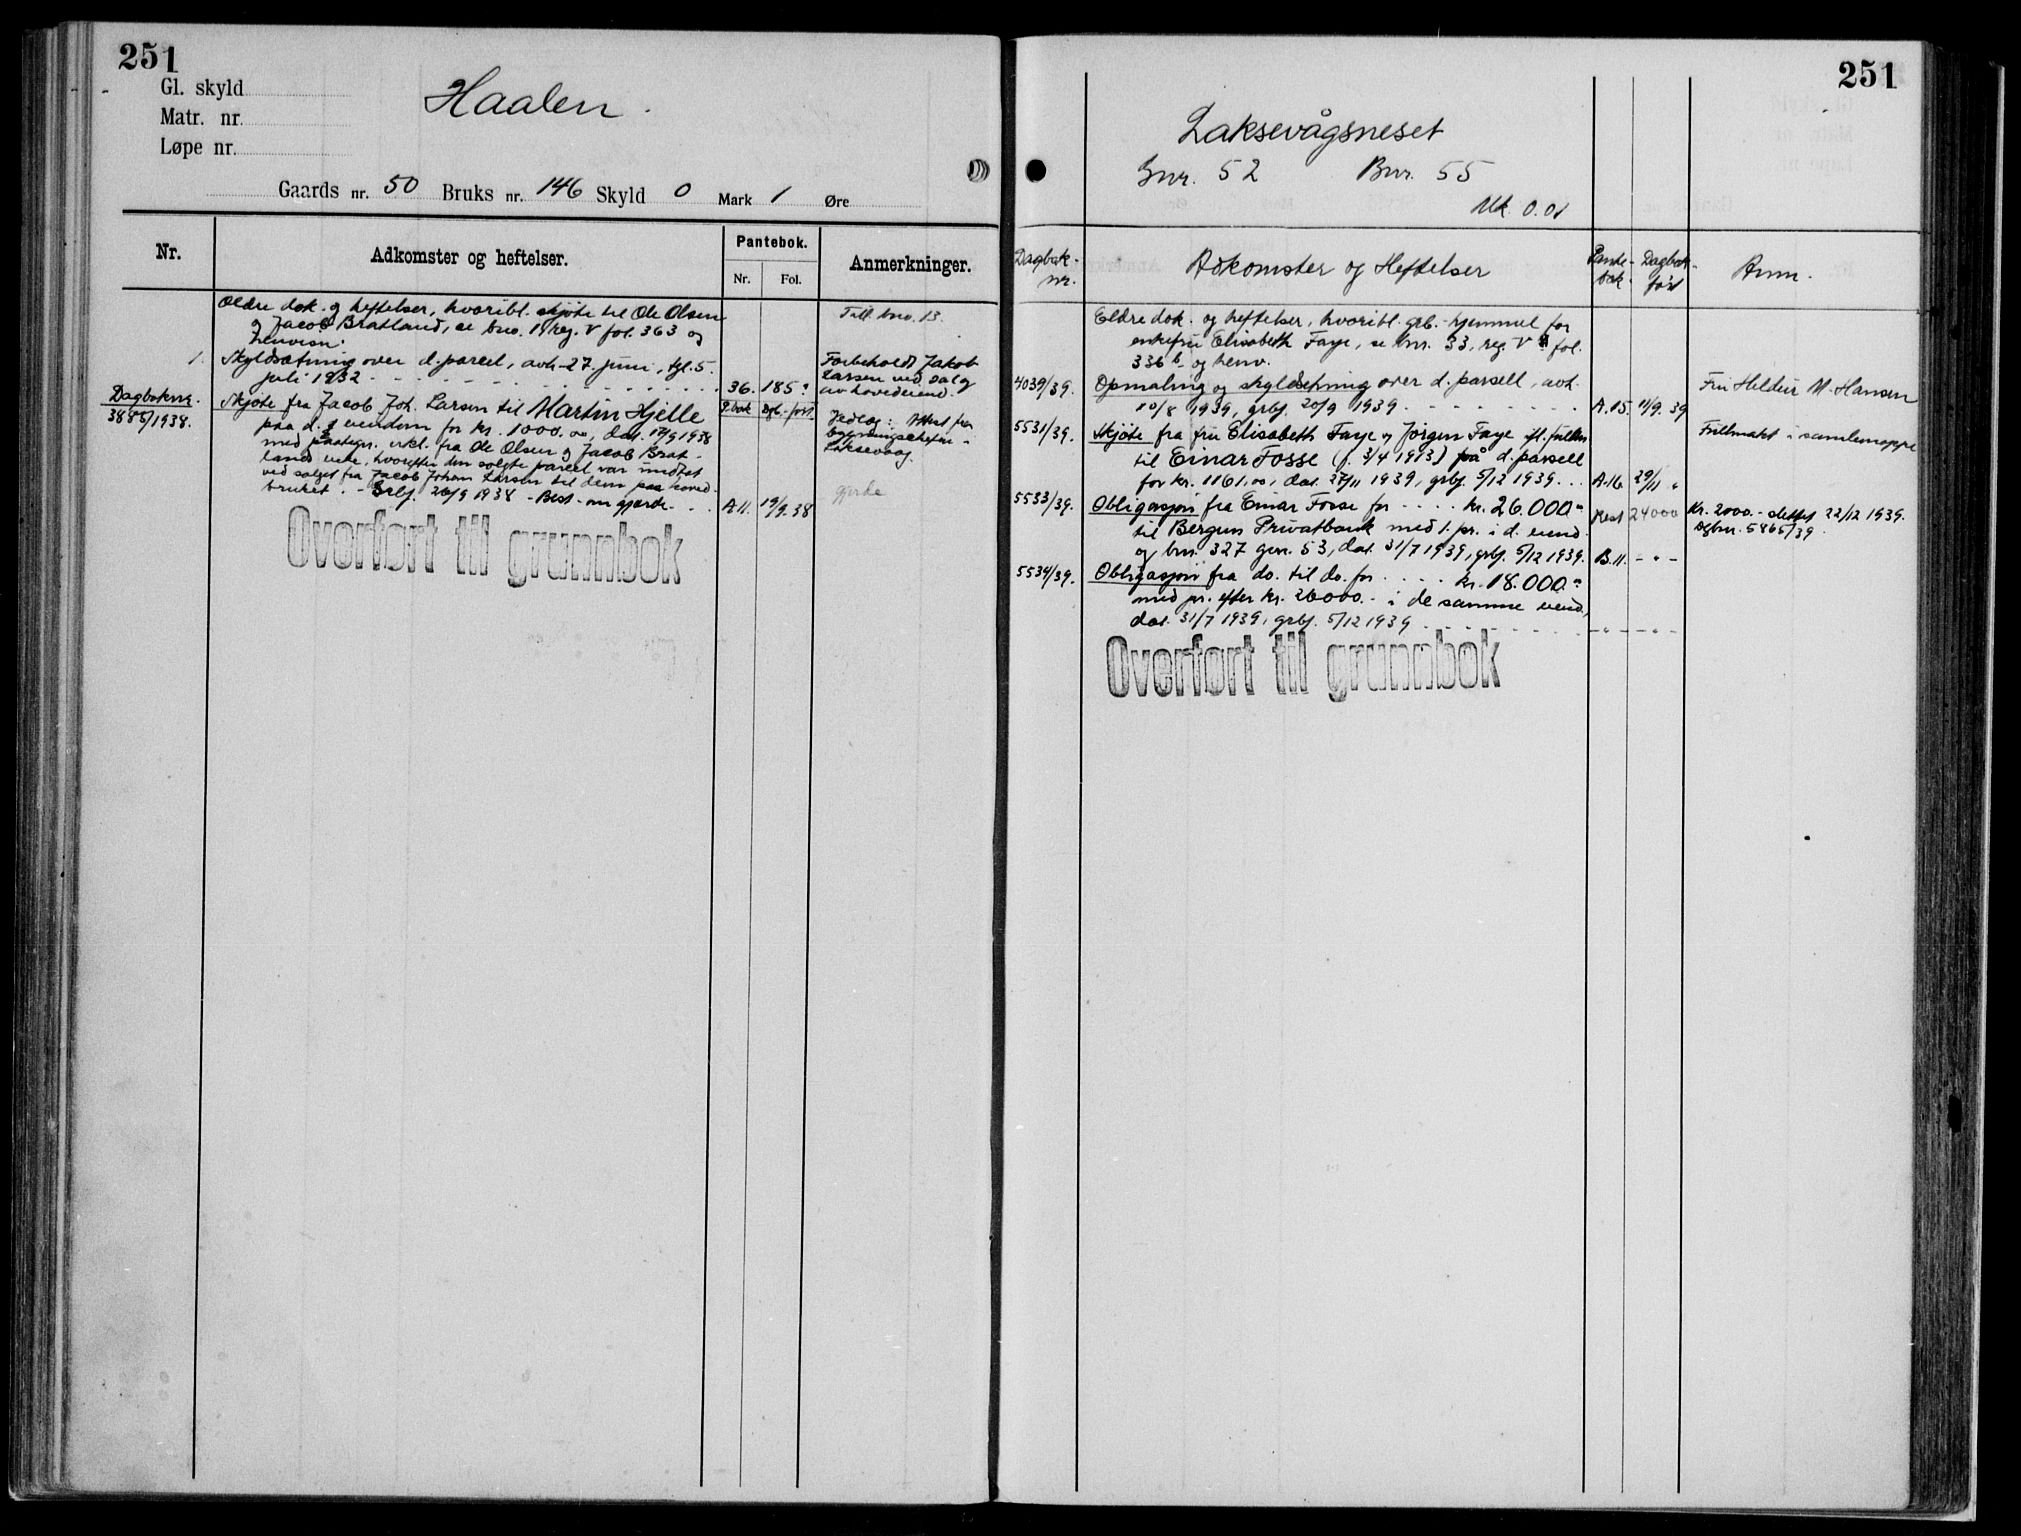 251
Gl. skyld
Matr. nr.
Løpe nr.
Haalen
Gaards nr. 50 Bruks nr. 146 Skyld 0 Mark 1 Øre
Nr.
Adkomster og heftelser.
Pantebok.
Nr. Fol.
Anmerkninger.
Ældre dok. og heftelser, hvoribl. skjøte til Ole Olsen
og Jacob Bratland, se bno. 1, reg. V fol. 363 og
henvisn.
Till. bno. 13.
1. Skyldsætning over d. parcel, avh. 27 juni, tgl. 5
juli 1932 36. 185
Forbeholdt Jakob
Larsen ved salg
av hovedeiend.
Dagboknr.
3885/1938.
P.bok Dgb.-ført
Skjøte fra Jacob Joh. Larsen til Martin Hjelle
paa d. eiendom for kr. 1000.00, dat. 1938
med paategn. erkl. fra Ole Olsen og Jacob Brat-
land, hvorefter den solgte parcel var undtat
ved salget fra Jacob Johan Larsen til dem paa hoved-
bruket. - Grbf. 26/9 1938 - Best. om gjerde. A 11. 19/9.38
Vedlag: Attest fra
bygningschefen
Laksevaag.
gjerde
Overført til grunnbok
251
Laksevågsneset
Gnr. 52 Bnr. 55
Mk. 0.01
Dagbok-
nr.
Adkomster og Heftelser
Pante-
bok
Dagbok-
ført
Anm.
Eldre dok. og heftelser, hvoribl. grb.-hjemmel for
enkefru Elisabeth Faye, se bnr. 33, reg. V fol.
336 b og henv.
4039/39. Opmaling og skyldsetning over d. parsell, avh.
10/8 1939, grbf. 20/9 1939 A.15. 11/9.39
Fru Hildur M. Hansen
5531/39. Skjøte fra fru Elisabeth Faye og Jørgen Faye ifl. fullm.
til Einar Fosse (f. 3/4 1913) på d. parsell
for kr. 1161.00, dat. 27/11 1939, grbf. 5/12 1939. A.16. 29/11 "
Fullmakt i samlemappe
5533/39. Obligasjon fra Einar Fosse for kr. 26.000.-
til Bergens Privatbank med 1. pr. i d. eiend.
og bnr. 327 gnr. 53, dat. 31/7 1939, grbf. 5/12 1939. B.11. - " -
Rest 24000
Kr. 2000.- slettet 22/12 1939.
Dgbnr. 5865/39.
5534/39. Obligasjon fra do. til do. for kr. 18.000.-
med pr. efter kr. 26000.- i de samme eiend.,
dat. 31/7 1939, grbf. 5/12 1939 - " - - " -
Overført til grunnbok